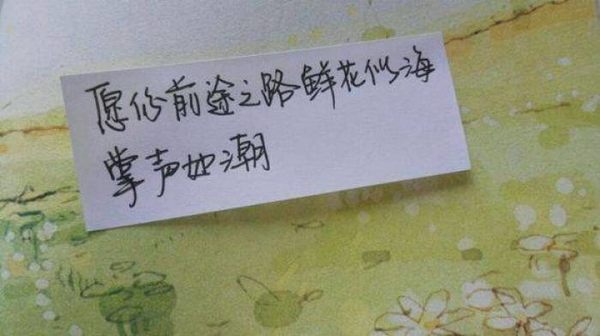 愿你前途之路鲜花似海
掌声如潮